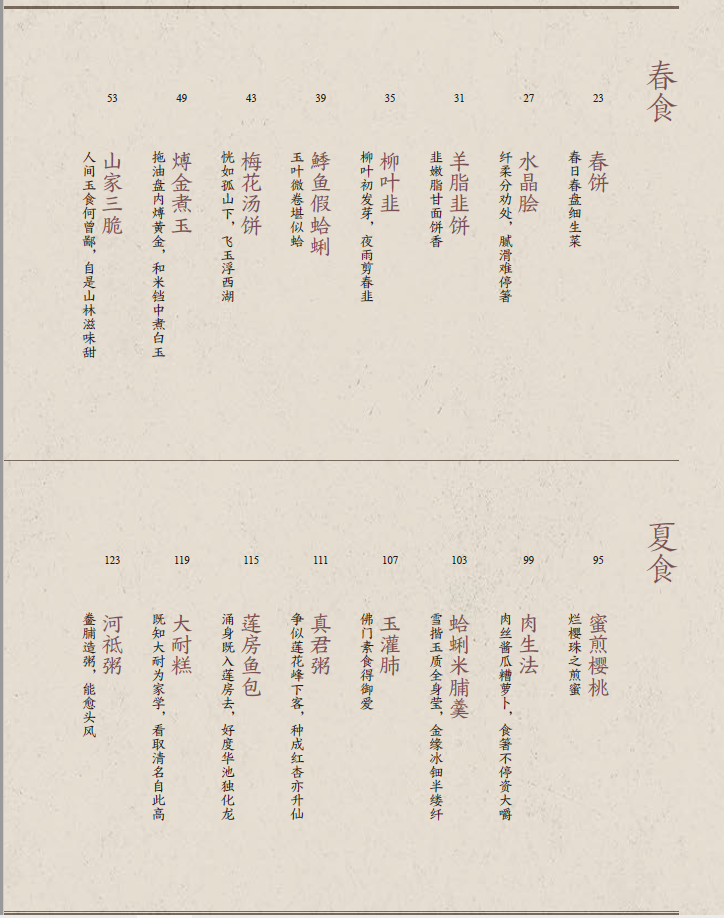 春食
23
春饼
春日春盘细生菜
27
水晶脍
纤柔分劝处，腻滑难停箸
31
羊脂韭饼
韭嫩脂甘面饼香
35
柳叶韭
柳叶初发芽，夜雨剪春韭
39
鯚鱼假蛤蜊
玉叶微卷堪似蛤
43
梅花汤饼
恍如孤山下，飞玉浮西湖
49
煿金煮玉
拖油盘内煿黄金，和米铛中煮白玉
53
山家三脆
人间玉食何曾鄙，自是山林滋味甜
夏食
95
蜜煎樱桃
烂樱珠之煎蜜
99
肉生法
肉丝酱瓜糟萝卜，食箸不停资大嚼
103
蛤蜊米脯羹
雪揩玉质全身莹，金缘冰钿半缕纤
107
玉灌肺
佛门素食得御爱
111
真君粥
争似莲花峰下客，种成红杏亦升仙
115
莲房鱼包
涌身既入莲房去，好度华池独化龙
119
大耐糕
既知大耐为家学，看取清名自此高
123
河祗粥
鲞脯造粥，能愈头风